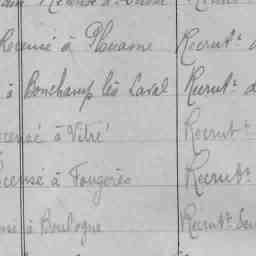 Recensé à Plouasne Recrut.t d
à Bonchamp lès Laval Recrut.t d
Recensé à Vitré Recrut.t
Recensé à Fougères Recrut.t
à Boulogne Recrut.t Sei